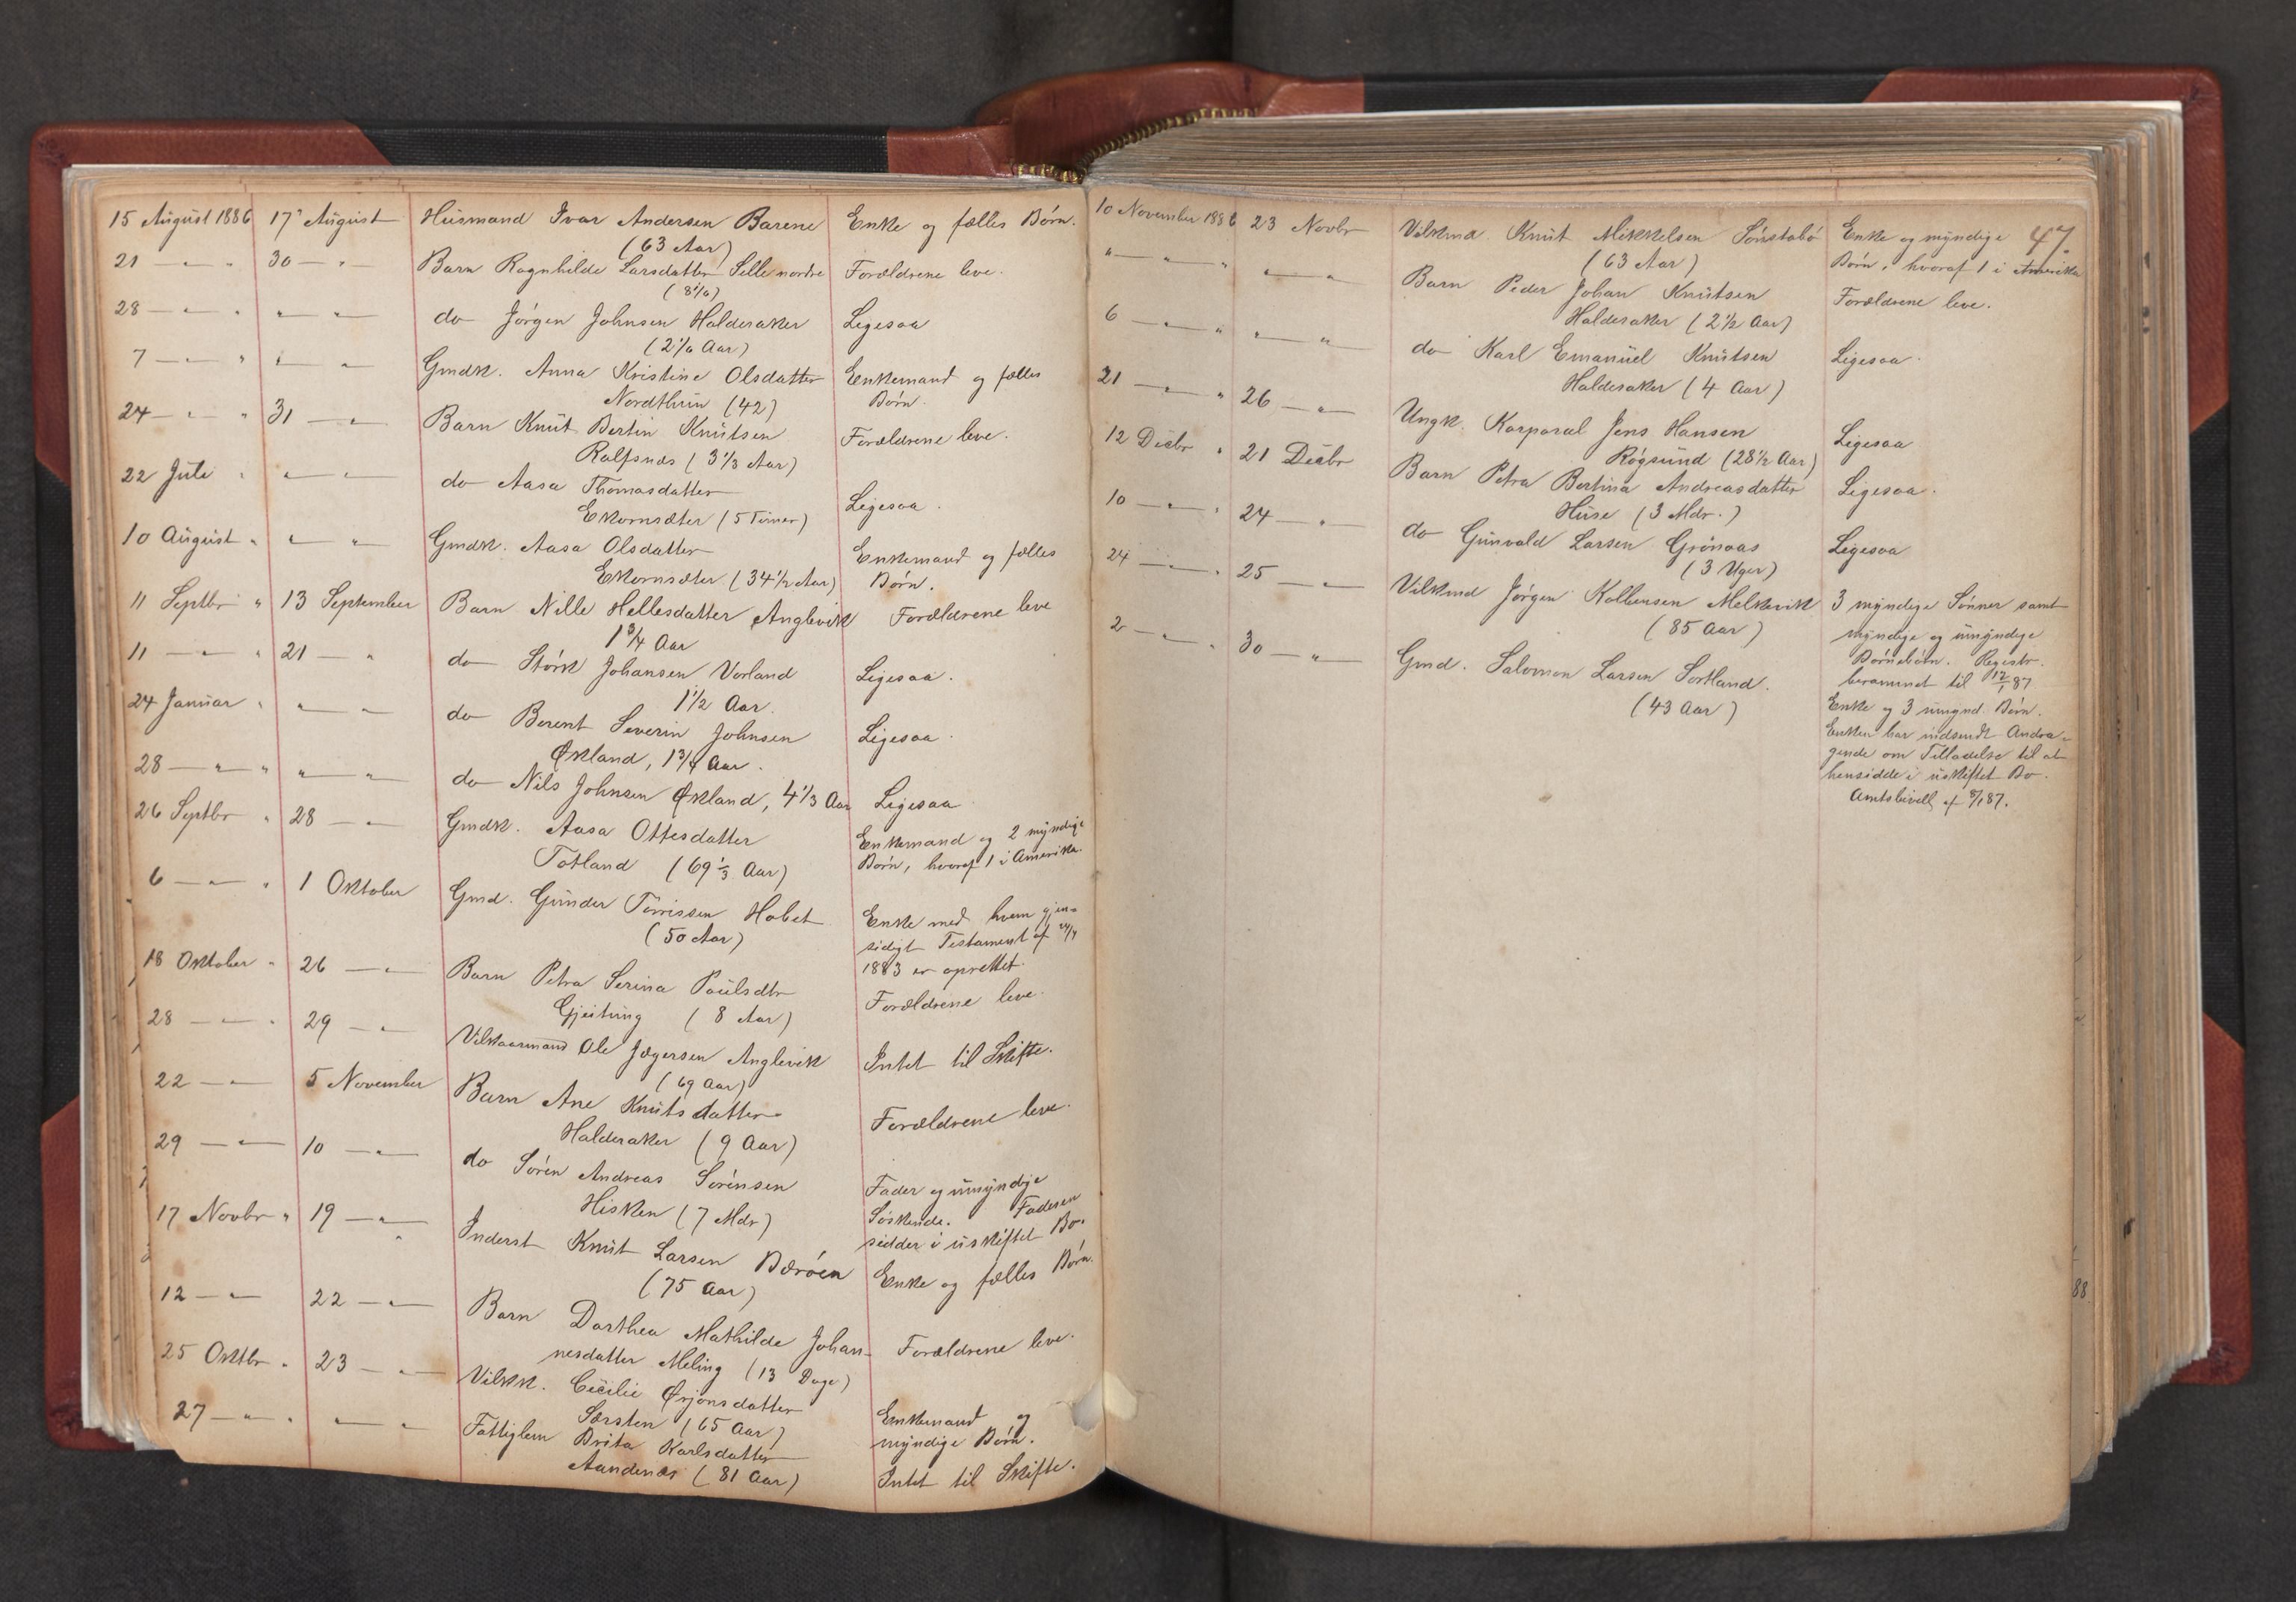 15 August 1886 17 August Husmand Ivar Andersen Barene Enke og fælles Børn.
(63 Aar)
21 — " — " 30 — " Barn Ragnhilde Larsdatter Selle nordre Forældrene leve.
28 — " — " " — " do Jørgen Johnsen Halderaker Ligesaa
7 — " — " " — " Gmdk. Anna Kristine Olsdatter Enkemand og fælles
Nordthun (42) Børn.
24 — " — " 31 — " Barn Knut Bertin Knutsen Forældrene leve.
Ralfsnæs (3 1/3 Aar)
22 Juli " " — " do Aasa Thomasdatter Ligesaa.
Ekornsæter (5 Timer)
10 August " " — " Gmdk. Aasa Olsdatter Enkemand og fælles
Ekornsæter (34 1/2 Aar) Børn.
11 Septbr " 13 September Barn Nille Hellesdatter Anglevik Forældrene leve
1 3/4 Aar
11 — " — " 21 — " do Størk Johansen Vorland Ligesaa.
1 1/2 Aar.
24 Januar " " — " do Berent Severin Johnsen Ligesaa.
Økland, 1 3/4 Aar.
28 — " — " " — " do Nils Johnsen Økland, 4 1/3 Aar Ligesaa
26 Septbr " 28 — " Gmdk. Aasa Ottesdatter Enkemand og 2 myndige
Totland (69 1/3 Aar) Børn, hvoraf 1 i Amerika.
6 — " — " 1 Oktober Gmd. Gunder Tørrissen Habet Enke med hvem gjen-
(50 Aar) sidigt Testament af
1883 er oprettet.
18 Oktober " 26 — " Barn Petra Serina Poulsdtr Forældrene leve.
Gjeitung (8 Aar)
28 — " — " 29 — " Vilkaarmand Ole Jægersen Anglevik Intet til Skifte.
(69 Aar)
22 — " — 5 November Barn Ane Knutsdatter Forældrene leve.
Halderaker (9 Aar)
29 — " — 10 — " do Søren Andreas Sørensen Fader og umyndige
Hisken (7 Mdr) Søskende. Faderen
sidder i uskiftet Bo.
17 Novbr " 19 — " Inderst Knut Larsen Bærøen Enke og fælles Børn.
(75 Aar)
12 — " — 22 — " Barn Dorthea Mathilde Johan- Forældrene leve.
nesdatter Meling (13 Dage)
25 Oktbr " 23 — " Vilkk. Cicilie Ørjansdatter Enkemand og
Særsten (65 Aar) myndige Børn.
27 — " — " — " Fattiglem Brita Karlsdatter
Aandenæs (81 Aar) Intet til Skifte.
47
10 November 1886 23 Novbr Vilkmd. Knut Mikkelsen Sønstabø Enke og myndige
(63 Aar) Børn, hvoraf 1 i Amerika
" — " — " " — " Barn Peder Johan Knutsen Forældrene leve.
Halderaker (2 1/2 Aar)
6 — " — " " — " do Karl Emanuel Knutsen Ligesaa.
Halderaker (4 Aar)
21 — " — " 26 — " Ungk. Korporal Jens Hansen Ligesaa
Røgsund (28 1/2 Aar)
12 Decbr " 21 Decbr Barn Petra Bertina Andreasdatter Ligesaa.
Huse (3 Mdr.)
10 — " — " 24 — " do Gunvald Larsen Grønaas Ligesaa
(3 Uger)
24 — " — " 25 — " Vilkmd Jørgen Kolbensen Melkevik 3 myndige Sønner samt
(85 Aar) myndige og umyndige
Børnebørn. Registr.
berammet til 12/1 87
2 — " — " 30 — " Gmd. Salomon Larsen Sortland. Enke og 3 umynd. Børn.
(43 Aar) Enken har indsendt Andra-
gende om Tilladelse til at
hensidde i uskiftet Bo.
Amtsbevill. af 8/1 87.
88